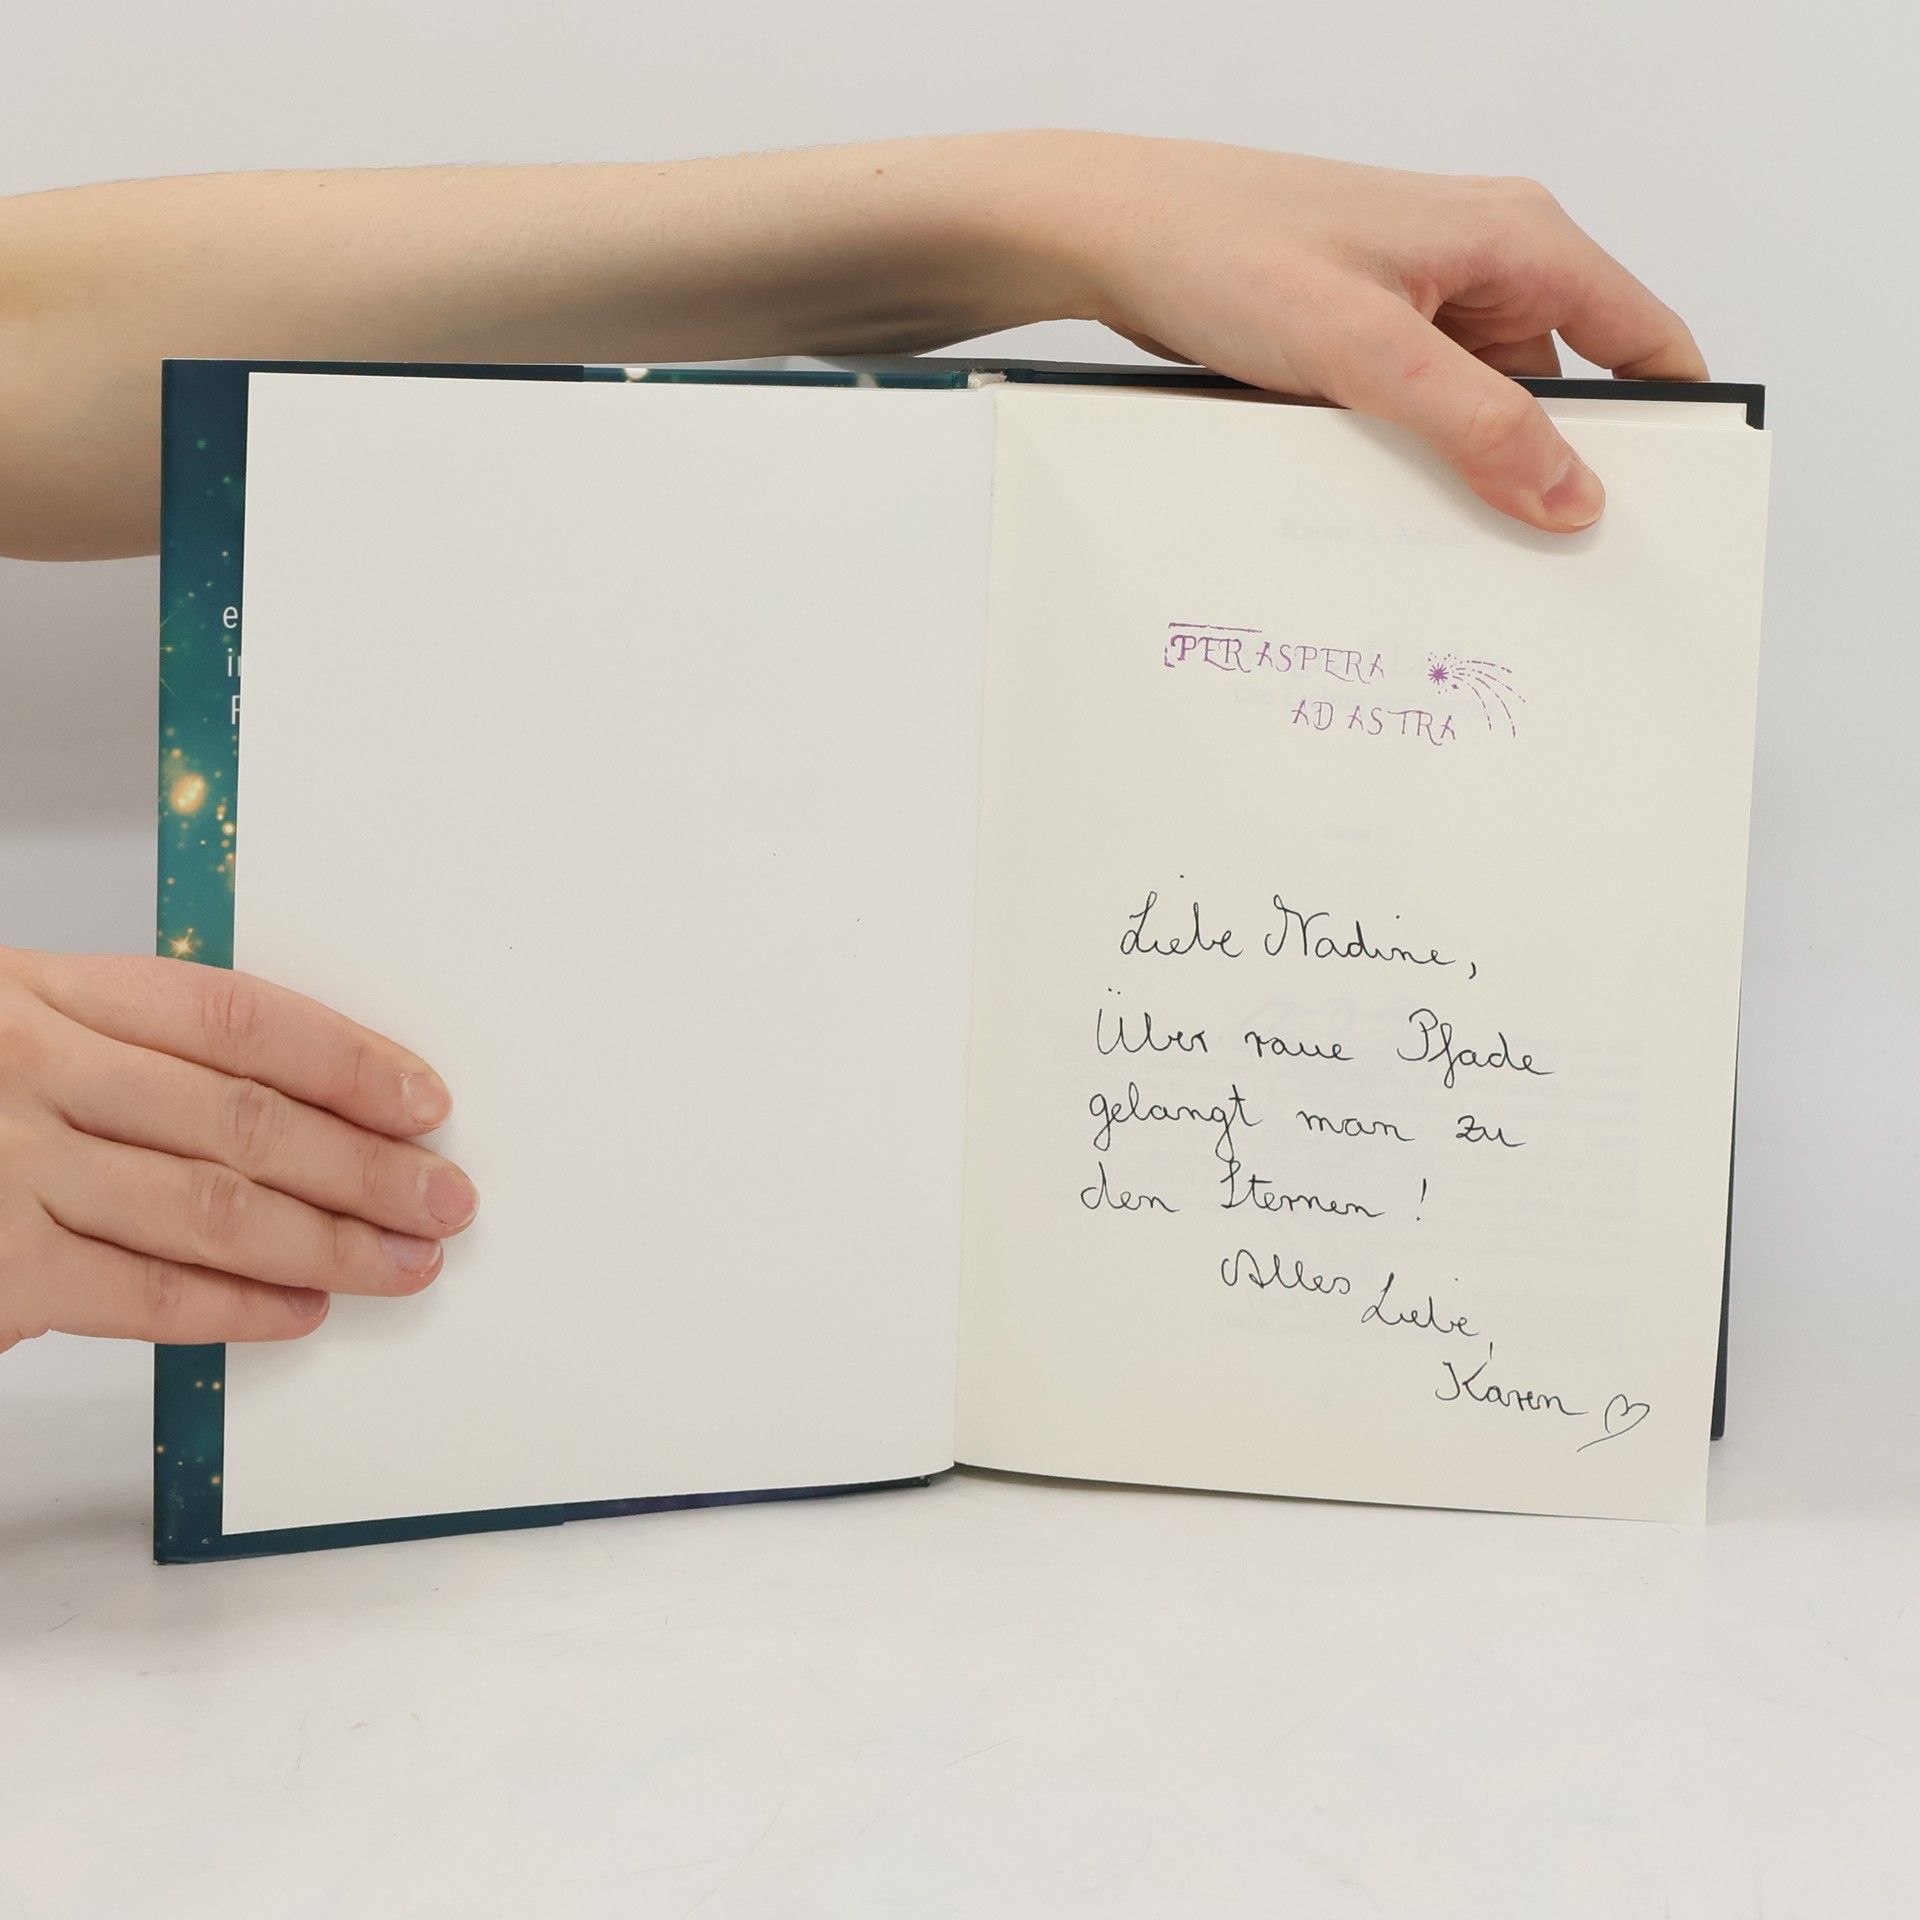 PER ASPERA
AD ASTRA
Liebe Nadine,
Über raue Pfade
gelangt man zu
den Sternen!
Alles
Liebe,
Karen